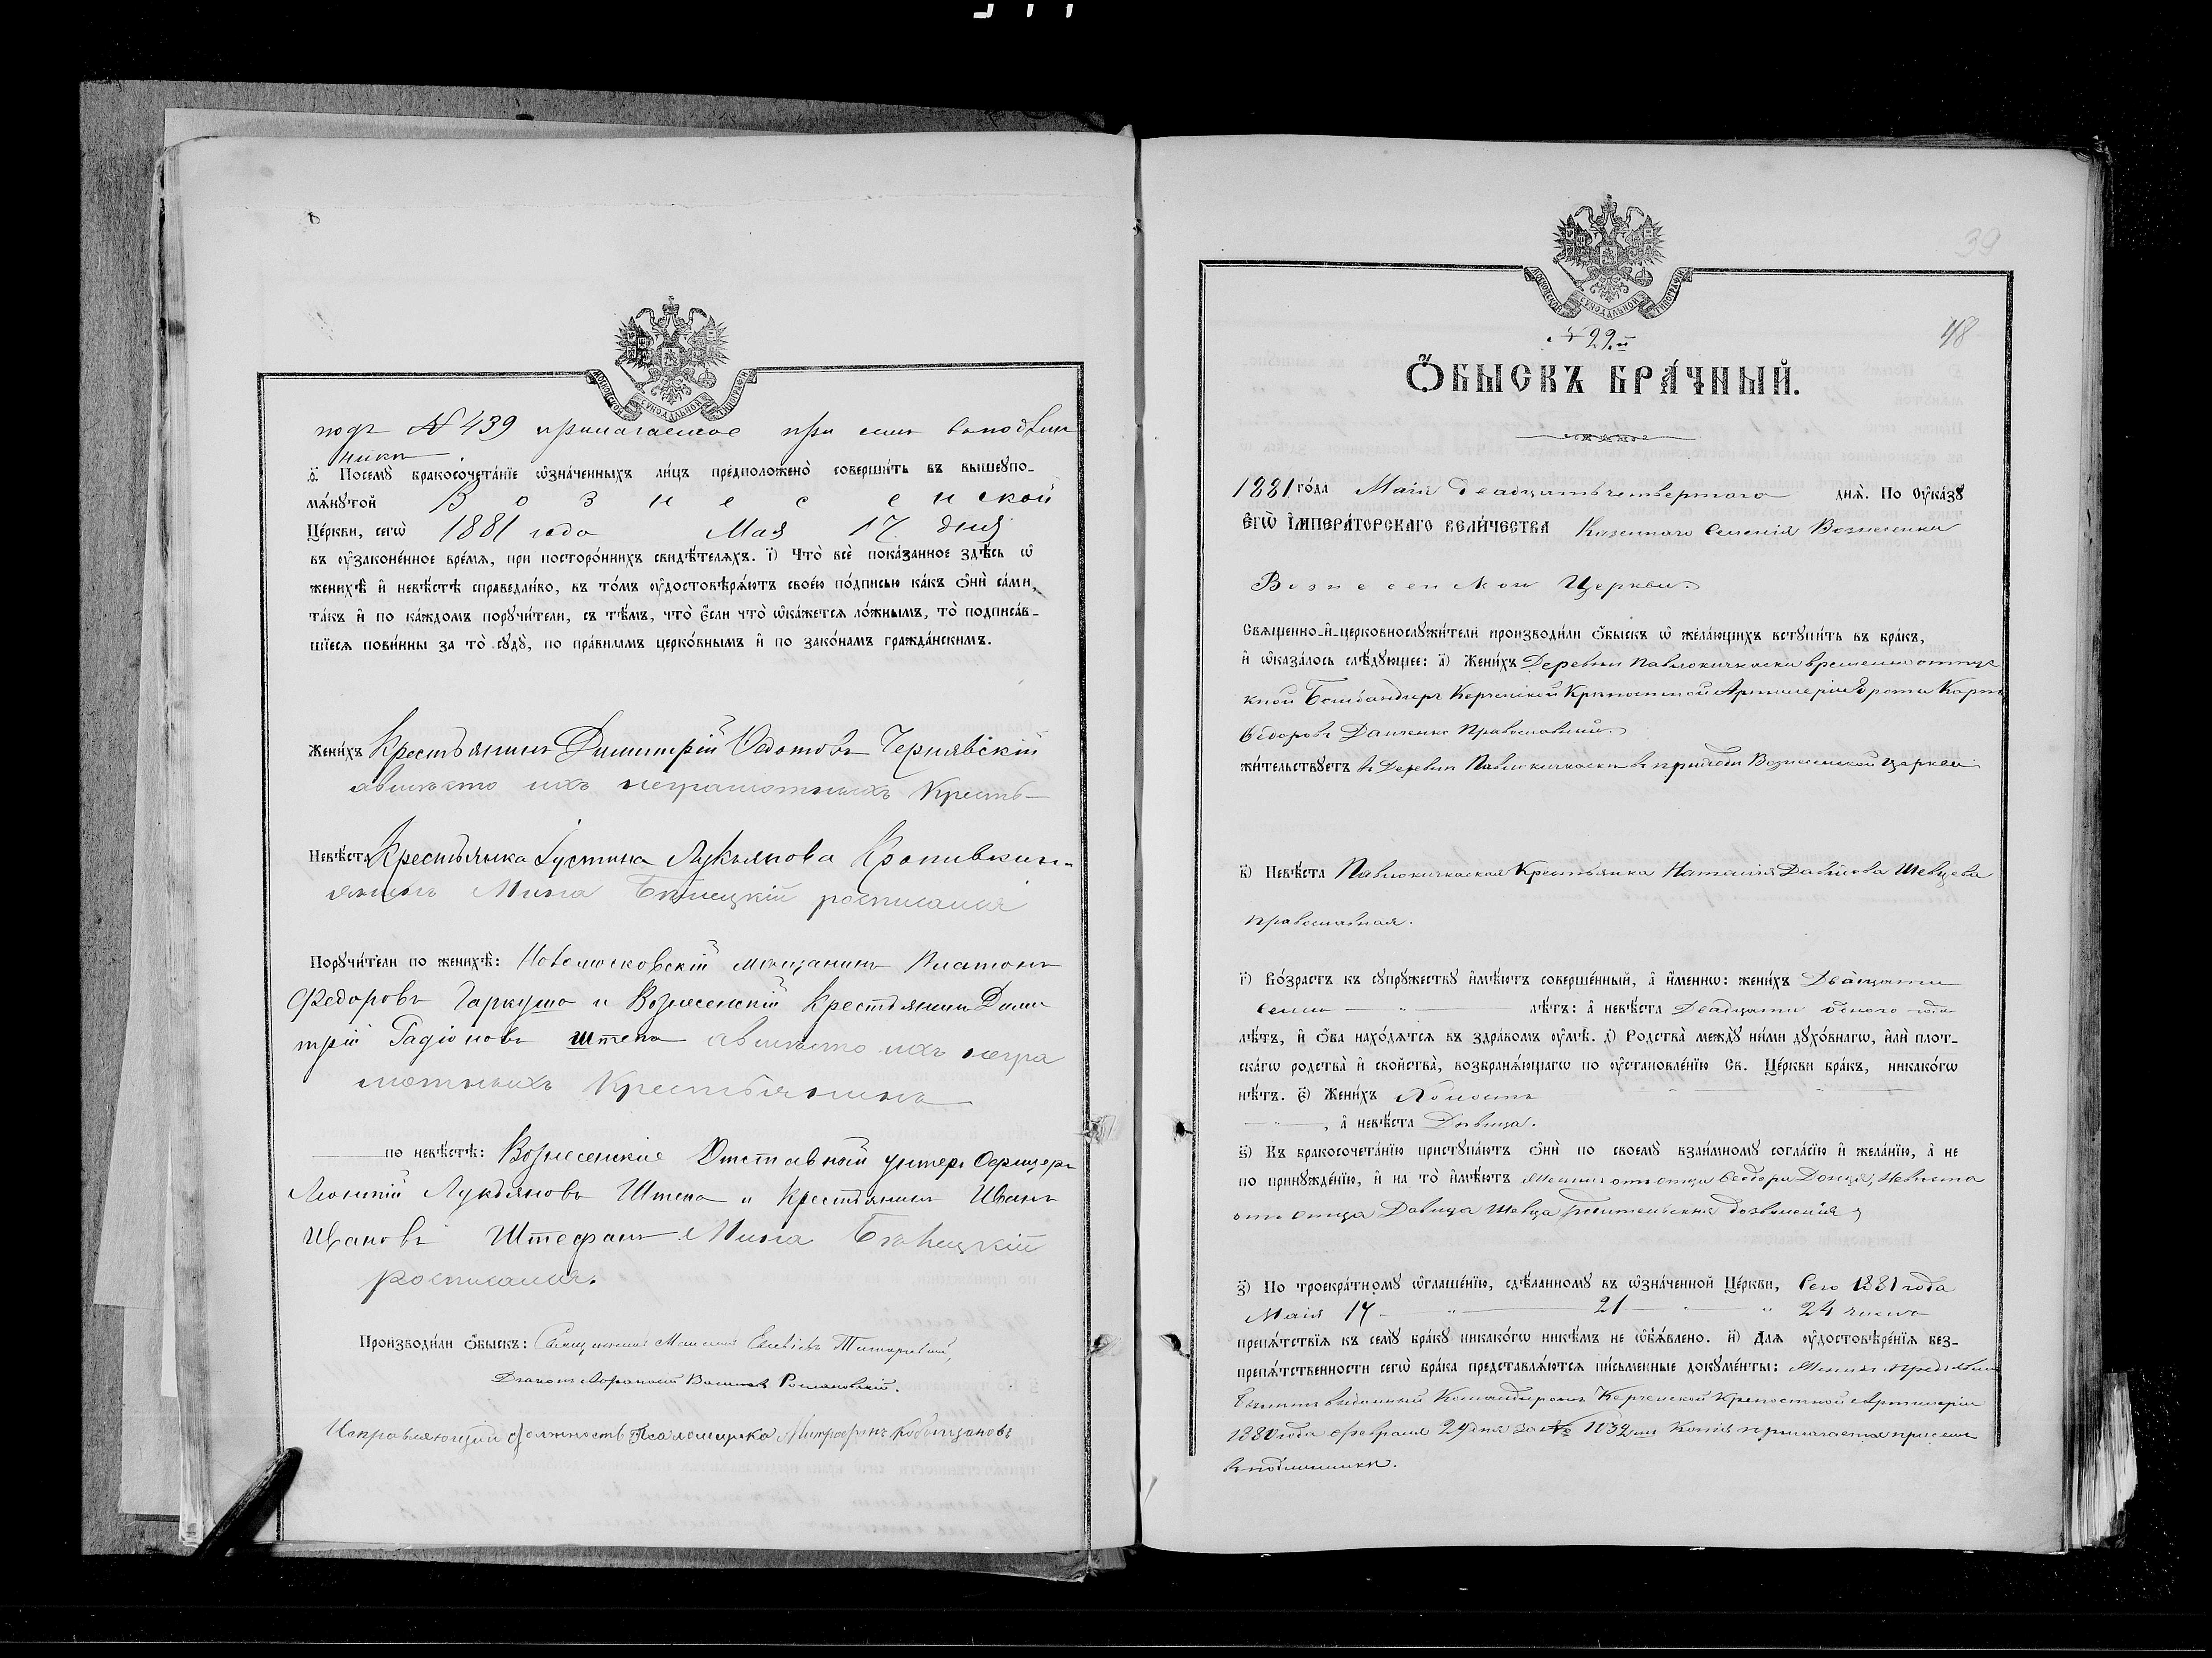 подъ № 439 прилагаемое при семъ въ подлин
никѣ
Посемꙋ бракосочета́нїе ѡ҆зна́ченныхъ ли́цъ предположено̀ соверши́ть въ вышеꙋпо-
мѧ́нꙋтой Вознесенской
Це́ркви, сегѡ̀ 1881 года Мая 17 дня
въ ᲂу҆законе́нное вре́мѧ, при посторо́ннихъ свидѣ́телѧхъ. і҃) Что̀ всѐ пока́занное здѣ́сь ѡ҆
женихѣ̀ и҆ невѣ́стѣ справедли́во, въ то́мъ ᲂу҆достовѣрѧ́ютъ свое́ю по́дписью ка́къ ѻ҆нѝ са́ми,
та́къ и҆ по ка́ждомъ порꙋчи́тели, съ тѣ́мъ, что̀ є҆́сли что̀ ѡ҆ка́жетсѧ ло́жнымъ, то̀ подписа́в-
шїесѧ пови́нны за то̀ сꙋдꙋ̀, по пра́виламъ церко́внымъ и҆ по зако́намъ гражда́нскимъ.
Жени́хъ Крестьянинъ Димитрій Ѳедотовъ Чернявскій
а вмѣсто ихъ неграмотныхъ Кресть-
Невѣ́ста Крестьянка Іустина Лукьянова Кропивкин-
янинъ Мина Бѣлецкій росписался
Порꙋчи́тели по женихѣ̀: Новомосковскій мѣщанинъ Платонъ
Федоровъ Гаркуша и Вознесенскій Крестьянинъ Дими
трій Радіоновъ Штепа а вмѣсто ихъ негра
мотныхъ Крестьянинъ
по невѣ́стѣ: Вознесенскіе Отставной унтеръ Офицеръ
Леонтій Лукьяновъ Штепа и Крестьянинъ Иванъ
Ивановъ Штефанъ Мина Бѣлецкій
росписался.
Производи́ли ѻ҆́быскъ: Священникъ Титаревскій,
Діаконъ Афанасій Романовскій.
Исправляющій должность Псаломщика Митрофанъ Кобызановъ
39
48
№ 22.й
Ѻ҆́БЫСКЪ БРА́ЧНЫЙ.
1881 го́да Маія двадцать четвертого днѧ̀. По ᲂу҆ка́зꙋ
Є҆гѡ̀ И҆мпера́торскагѡ вели́чества Казеннаго Селенія Вознесенки
Вознесенской Церкви
Свѧще́нно-и҆-церковнослꙋжи́тели производи́ли ѻ҆́быскъ ѡ҆ жела́ющихъ встꙋпи́ть въ бра́къ,
и҆ ѡ҆каза́лось слѣ́дꙋющее: а҃) Жени́хъ Деревни Павлокичкаски временно отпус
кной Бомбандиръ Керченской Крѣпостной Артилеріи роты Карпъ
Ѳедоровъ Данченко Православный
жи́тельствꙋетъ въ Деревни Павлокичкаски въ приходѣ Вознесенской церкви
в҃) Невѣ́ста Павлокичкаская Крестьянка Наталія Давидова Шевцева
православная.
г҃) Во́зрастъ къ сꙋпрꙋ́жествꙋ и҆мѣ́ютъ соверше́нный, а҆ и҆́меннѡ: жени́хъ Двадцати
семи лѣ́тъ: а҆ невѣ́ста Двадцати одного года
лѣ́тъ, и҆ ѻ҆́ба нахо́дѧтсѧ въ здра́вомъ ᲂу҆мѣ̀. д҃) Родства̀ междꙋ̀ ни́ми дꙋхо́внагѡ, и҆лѝ плот-
ска́гѡ родства̀ и҆ сво́йства, возбранѧ́ющагѡ по ᲂу҆становле́нїю Св. Це́ркви бра́къ, никако́гѡ
нѣ́тъ. є҃) Жени́хъ Холостъ
, а҆ невѣ́ста Дѣвица.
ѕ҃) Къ бракосочета́нїю пристꙋпа́ютъ ѻ҆нѝ по своемꙋ̀ взаи́мномꙋ согла́сїю и҆ жела́нїю, а҆ не
по принꙋжде́нїю, и҆ на то̀ и҆мѣ́ютъ Женихъ отъ отца Ѳеодора Донця, Невѣста
отъ отца Давида Шевца родительскія дозволенія
з҃) По троекра́тномꙋ ѡ҆глаше́нїю, сдѣ́ланномꙋ въ ѡ҆зна́ченной Це́ркви, Сего 1881 года
Маія 17 21 24 числа
препѧ́тствїѧ къ семꙋ̀ бра́кꙋ никако́гѡ никѣ́мъ не ѡ҆б̾ѧ́влено. и҃) Длѧ ᲂу҆достовѣре́нїѧ без-
препѧ́тственности сегѡ̀ бра́ка представлѧ́ютсѧ пи́сьменные докꙋме́нты: Женихъ предъявилъ
билетъ выданный Командиромъ Керченской Крепостной Артилеріи
1880 года февраля 29 дня за № 1032 Копія прилагается при семъ
въ подлинникѣ.